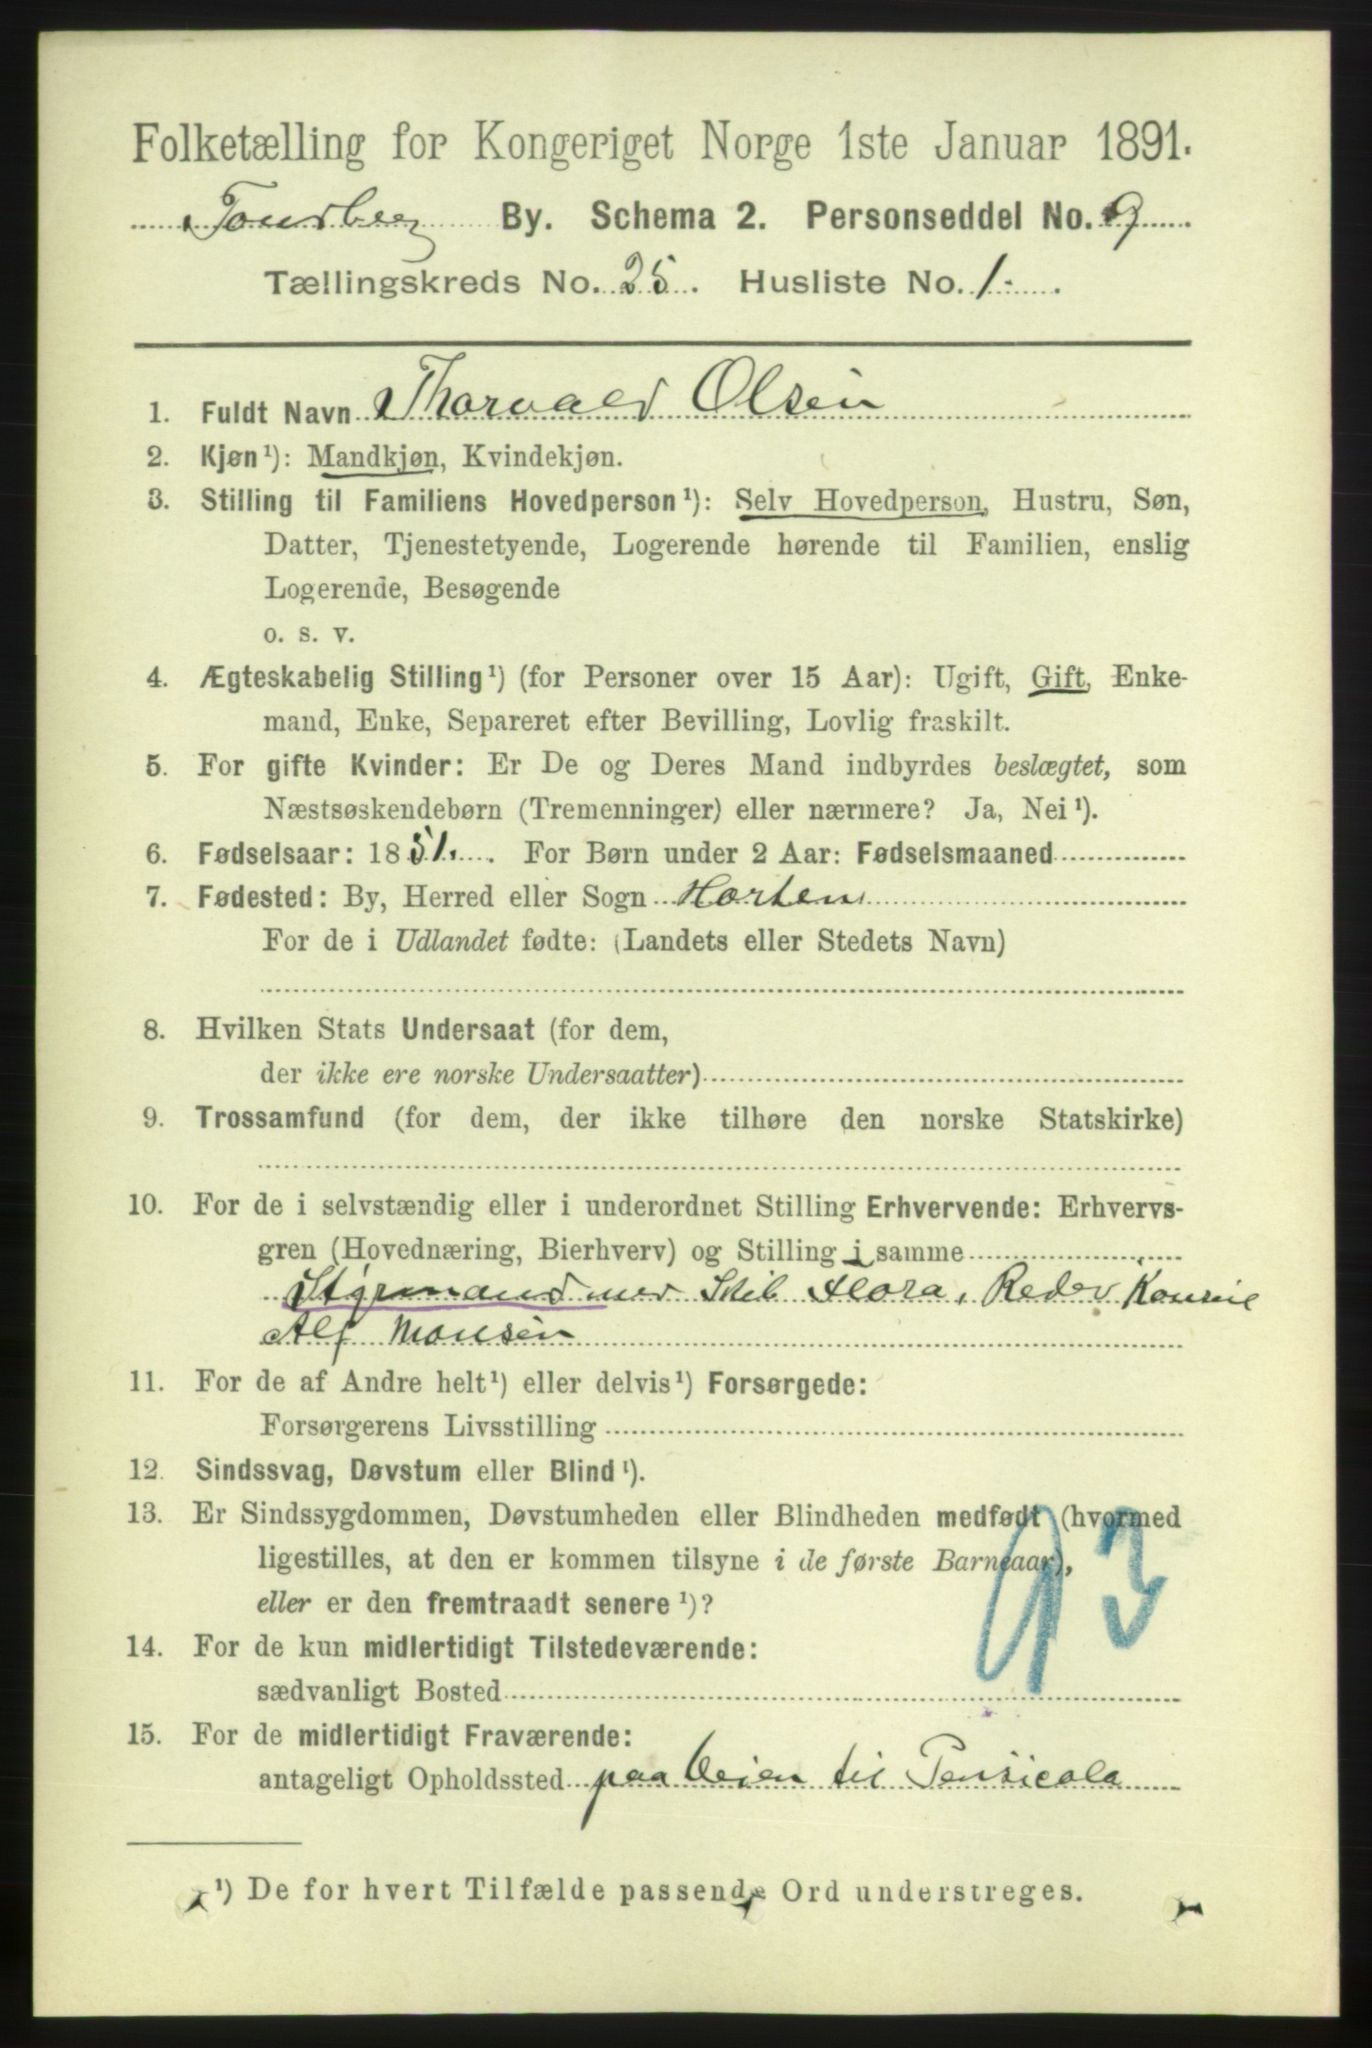 Folketælling for Kongeriget Norge 1ste Januar 1891.
Tønsberg By. Schema 2. Personseddel No. 9
Tællingskreds No. 25. Husliste No. 1.
1. Fuldt Navn Thorvald Olsen
2. Kjøn¹): Mandkjøn, Kvindekjøn.
3. Stilling til Familiens Hovedperson¹): Selv Hovedperson, Hustru, Søn,
Datter, Tjenestetyende, Logerende hørende til Familien, enslig
Logerende, Besøgende
o. s. v.
4. Ægteskabelig Stilling¹) (for Personer over 15 Aar): Ugift, Gift, Enke-
mand, Enke, Separeret efter Bevilling, Lovlig fraskilt.
5. For gifte Kvinder: Er De og Deres Mand indbyrdes beslægtet, som
Næstsøskendebørn (Tremenninger) eller nærmere? Ja, Nei¹).
6. Fødselsaar: 1851. For Børn under 2 Aar: Fødselsmaaned
7. Fødested: By, Herred eller Sogn Horten
For de i Udlandet fødte: (Landets eller Stedets Navn)
8. Hvilken Stats Undersaat (for dem,
der ikke ere norske Undersaatter)
9. Trossamfund (for dem, der ikke tilhøre den norske Statskirke)
10. For de i selvstændig eller i underordnet Stilling Erhvervende: Erhvervs-
gren (Hovednæring, Bierhverv) og Stilling i samme
Styrmand med Skib Flora, Reder Konsul
Alf Monsen
11. For de af Andre helt¹) eller delvis¹) Forsørgede:
Forsørgerens Livsstilling
12. Sindssvag, Døvstum eller Blind¹).
13. Er Sindssygdommen, Døvstumheden eller Blindheden medfødt (hvormed
ligestilles, at den er kommen tilsyne i de første Barneaar),
eller er den fremtraadt senere¹)?
93
14. For de kun midlertidigt Tilstedeværende:
sædvanligt Bosted
15. For de midlertidigt Fraværende:
antageligt Opholdssted paa Veien til Pensicola
¹) De for hvert Tilfælde passende Ord understreges.